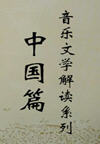 音乐·文学解读系列
中国篇